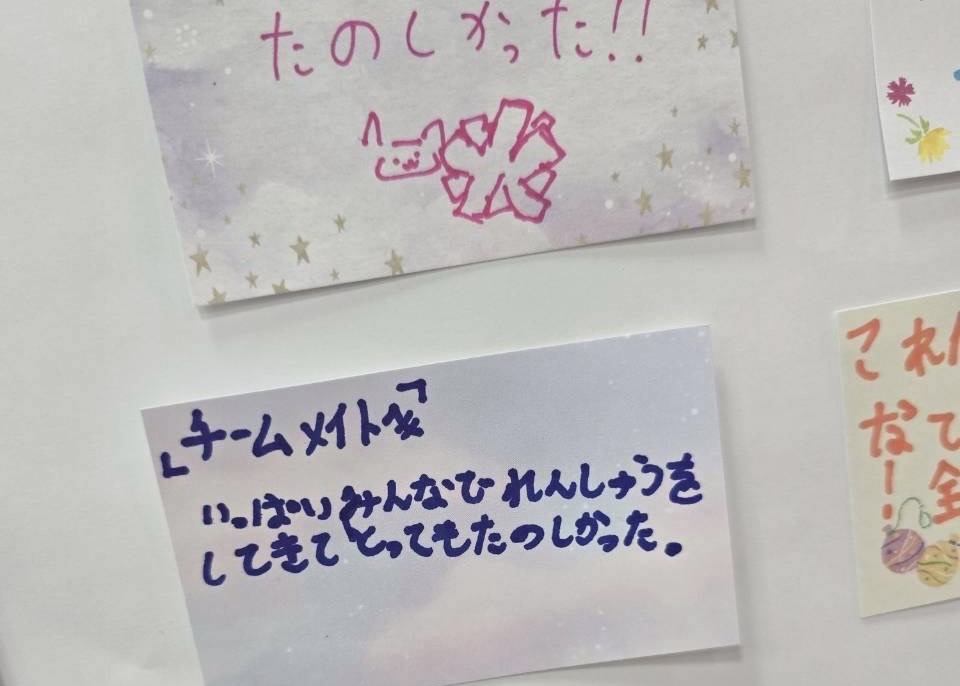 たのしかった!!
チームメイトへ
いっぱいみんなでれんしゅうを
してきてとってもたのしかった。
これ
な
て
全